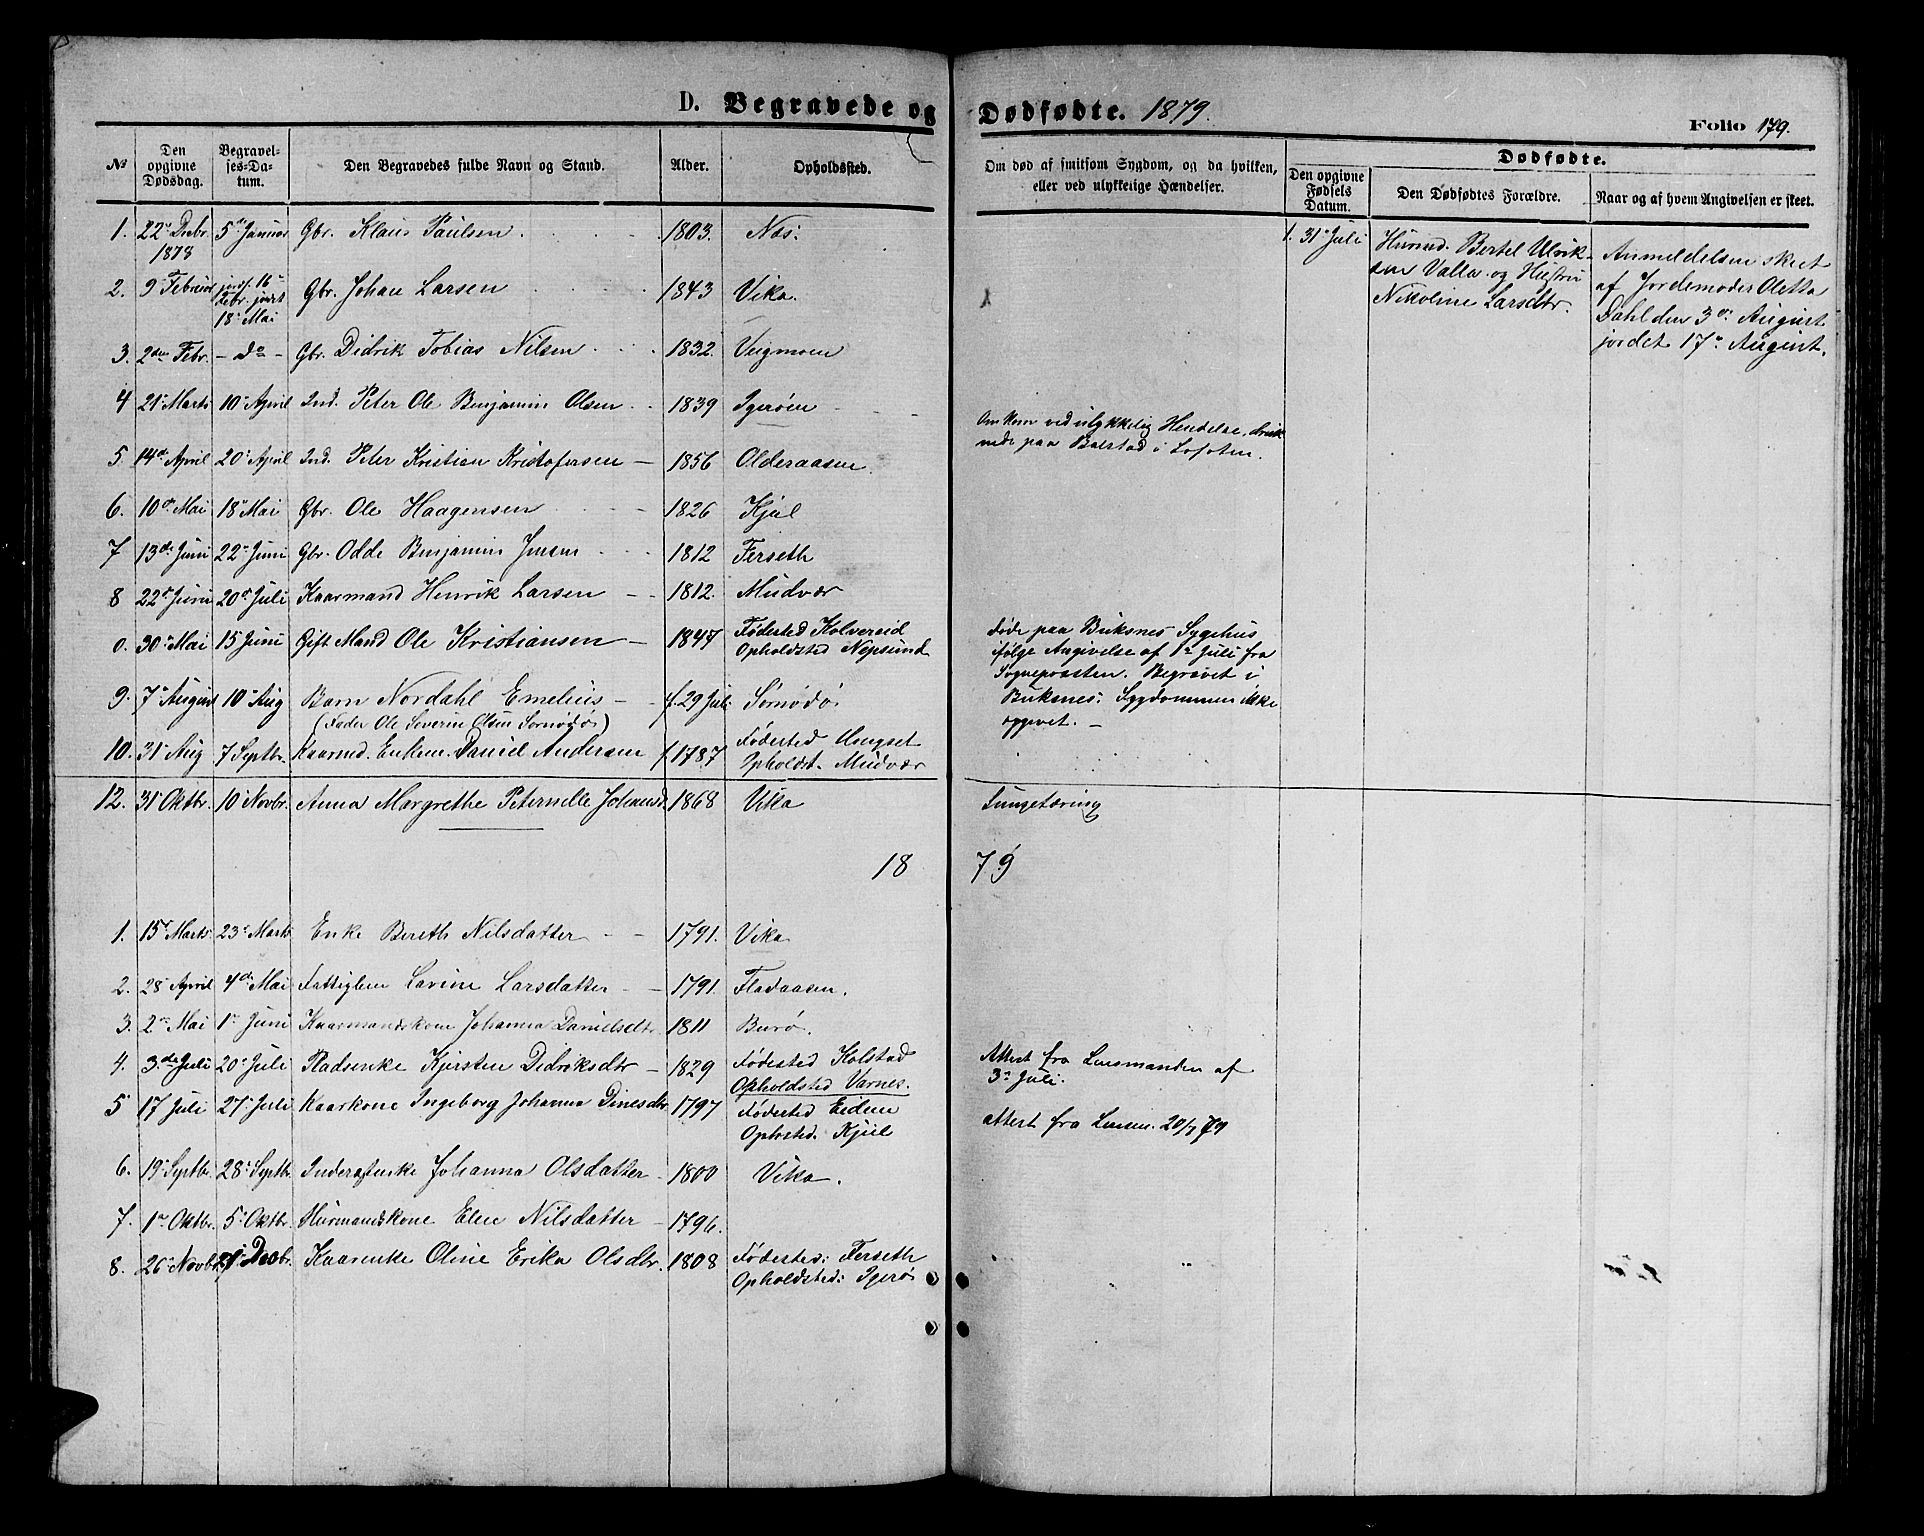 D. Begravede og Dødfødte. 1879.
Folio 179.
№ | Den opgivne Dødsdag. | Begravelses-Datum. | Den Begravedes fulde Navn og Stand. | Alder. | Opholdssted. | Om død af smitsom Sygdom, og da hvilken, eller ved ulykkelige Hændelser. | Dødfødte. Den opgivne Fødsels Datum. | Den Dødfødtes Forældre. | Naar og af hvem Angivelsen er skeet.
1. 22de Decbr. 1878 5te Januar Gbr. Klaus Paulsen 1803. Næs.
2. 9 Februar 16 Febr. jordet 18 Mai Gbr. Johan Larsen 1843 Vika.
3. 2den Febr. - do - Gbr. Didrik Tobias Nilsen 1832. Veigmoen
4 21 Marts 10 April Ind. Peter Ole Benjamin Olsen 1839 Igerøen
Omkom ved ulykkelig Hendelse, druk
nede paa Balstad i Lofoten.
5 14de April 20 April Ind. Peter Kristian Kristofersen 1856 Olderaasen
6. 10de Mai 18 Mai Gbr. Ole Haagensen 1826 Kjul
7 13de Juni 22 Juni Gbr. Odde Benjamin Jensen 1812 Ferseth
8 22de Juni 20de Juli Kaarmand Henrik Larsen 1812. Mudvær
0. 30 Mai 15 Juni Gift Mand Ole Kristiansen 1847 Fødested Kolvereid
Opholdsted Nepsund
døde paa Buksnes Sygehus
ifølge Angivelse af 1ste Juli fra
Sognepresten. Begravet i
Buksnes: Sygdommen ikke
opgivet. -
9. 7 August 10 Aug Barn Nordahl Emelius f. 29 Juli Sørnødø
(Fader Ole Severin Olsen Sørnødø)
10. 31 Aug 7 Septbr. Kaarmd. Enkem. Daniel Andersen f. 1787 Fødested Ungset
Opholdst. Mudvær
12. 31 Oktbr. 10 Novbr. Anna Margrethe Peternelle Johansd. 1868 Vika Lungetæring
1. 31 Juli Husmd. Bertel Ulrik-
sen Valla og Hustru
Nikoline Larsdtr.
Anmeldelsen skeet
af Jordemoder Oletta
Dahl den 3de August
jordet 17de August.
18 79
1. 15de Marts 23de Marts Enke Bereth Nilsdatter 1791. Vika
2. 28 April 4de Mai Fattiglem Lavine Larsdatter 1791. Fladaasen.
3. 2den Mai 1ste Juni Kaarmandskone Johanna Danielsdtr. 1811 Burø.
4. 3die Juli 20 Juli Pladsenke Kjersten Didriksdtr 1829 Fødested Kolstad
Opholdsted Varnes.
Attest fra Lensmanden af
3die Juli.
5 17 Juli 27 Juli Kaarkone Ingeborg Johanna Dinesdtr 1797 Fødested Eidem
Opholsted. Kjul
attest fra Lensm. 20/7 79
6. 19 Septbr. 28 Septbr. Inderstenke Johanna Olsdatter 1800 Vika.
7. 1ste Oktbr. 5 Oktbr. Husmandskone Elen Nilsdatter 1796.
8. 26 Novbr. Decbr. Kaarenke Oline Erika Olsdtr. 1808 Fødested: Ferseth
Opholdsted: Igerø